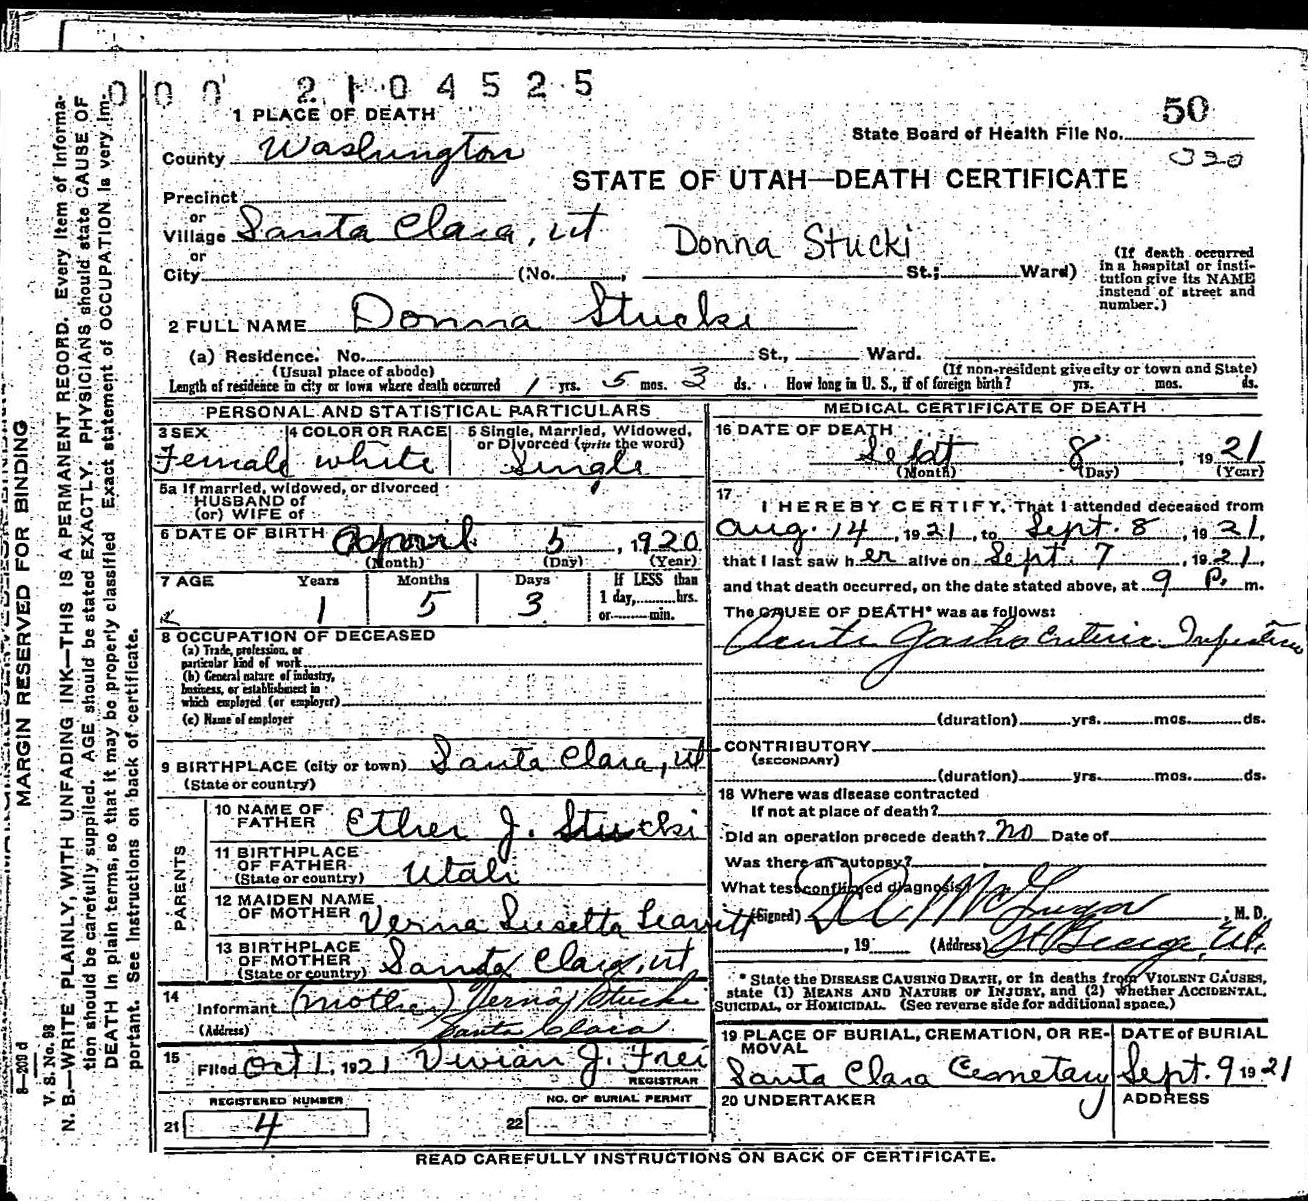 0 0 0 2 1 0 4 5 2 5
1 PLACE OF DEATH
50
State Board of Health File No.
320
County Washington
STATE OF UTAH—DEATH CERTIFICATE
Precinct
or
Village Santa Clara, Ut
Donna Stucki
or
City (No. , St.; Ward)
(If death occurred
in a hospital or insti-
tution give its NAME
instead of street and
number.)
2 FULL NAME Donna Stucki
(a) Residence. No. St., Ward.
(Usual place of abode)
(If non-resident give city or town and State)
Length of residence in city or town where death occurred 1 yrs. 5 mos. 3 ds. How long in U. S., if of foreign birth? yrs. mos. ds.
PERSONAL AND STATISTICAL PARTICULARS
3 SEX
Female
4 COLOR OR RACE
white
5 Single, Married, Widowed,
or Divorced (write the word)
Single
5a If married, widowed, or divorced
HUSBAND of
(or) WIFE of
6 DATE OF BIRTH April 5, 1920
(Month) (Day) (Year)
7 AGE Years Months Days If LESS than
1 day, hrs.
or min.
1 5 3
8 OCCUPATION OF DECEASED
(a) Trade, profession, or
particular kind of work
(b) General nature of industry,
business, or establishment in
which employed (or employer)
(c) Name of employer
9 BIRTHPLACE (city or town) Santa Clara, Ut
(State or country)
PARENTS
10 NAME OF
FATHER Ether J. Stucki
11 BIRTHPLACE
OF FATHER
(State or country) Utah
12 MAIDEN NAME
OF MOTHER Verna Susetta Leavitt
13 BIRTHPLACE
OF MOTHER
(State or country) Santa Clara, Ut
14
Informant (mother) Verna Stucki
(Address) Santa Clara
15
Filed Oct 1, 1921 Vivian J. Frei
REGISTRAR
REGISTERED NUMBER
21 4
NO. OF BURIAL PERMIT
22
MEDICAL CERTIFICATE OF DEATH
16 DATE OF DEATH
Sept 8, 1921
(Month) (Day) (Year)
17
I HEREBY CERTIFY, That I attended deceased from
Aug. 14, 1921, to Sept. 8, 1921,
that I last saw her alive on Sept. 7, 1921,
and that death occurred, on the date stated above, at 9 P. m.
The CAUSE OF DEATH* was as follows:
Acute Gastro Enteric Infection
(duration) yrs. mos. ds.
CONTRIBUTORY
(SECONDARY)
(duration) yrs. mos. ds.
18 Where was disease contracted
If not at place of death?
Did an operation precede death? No Date of
Was there an autopsy?
What test confirmed diagnosis?
(Signed) McGregor, M. D.
, 19 (Address) St George, Ut.
* State the DISEASE CAUSING DEATH, or in deaths from VIOLENT CAUSES,
state (1) MEANS AND NATURE OF INJURY, and (2) whether ACCIDENTAL,
SUICIDAL, or HOMICIDAL. (See reverse side for additional space.)
19 PLACE OF BURIAL, CREMATION, OR RE-
MOVAL
Santa Clara Cemetary
DATE of BURIAL
Sept. 9 1921
20 UNDERTAKER
ADDRESS
READ CAREFULLY INSTRUCTIONS ON BACK OF CERTIFICATE.
MARGIN RESERVED FOR BINDING
8—209 d
V. S. No. 98
N. B.—WRITE PLAINLY, WITH UNFADING INK—THIS IS A PERMANENT RECORD. Every item of informa-
tion should be carefully supplied. AGE should be stated EXACTLY. PHYSICIANS should state CAUSE OF
DEATH in plain terms, so that it may be properly classified. Exact statement of OCCUPATION is very im-
portant. See Instructions on back of certificate.